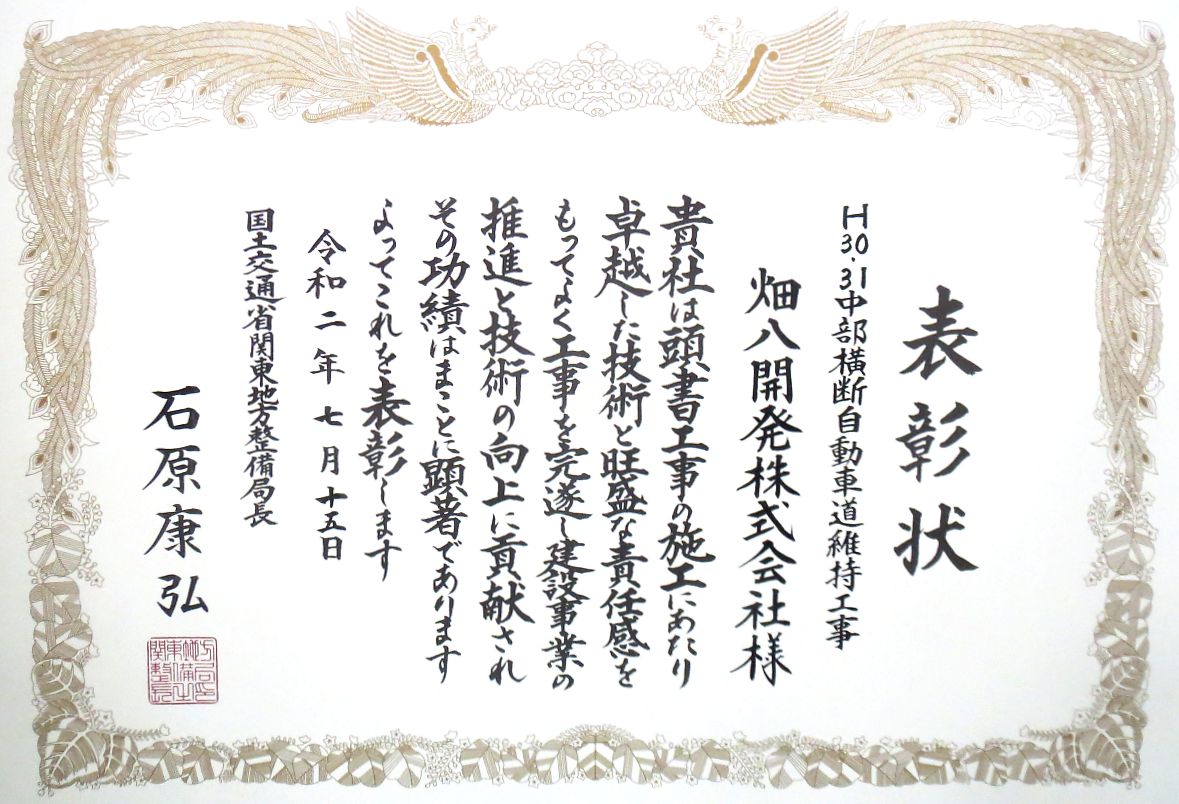 表彰状
H30・31中部横断自動車道維持工事
畑八開発株式会社様
貴社は頭書工事の施工にあたり
卓越した技術と旺盛な責任感を
もってよく工事を完遂し建設事業の
推進と技術の向上に貢献され
その功績はまことに顕著であります
よってこれを表彰します
令和二年七月十五日
国土交通省関東地方整備局長
石原康弘